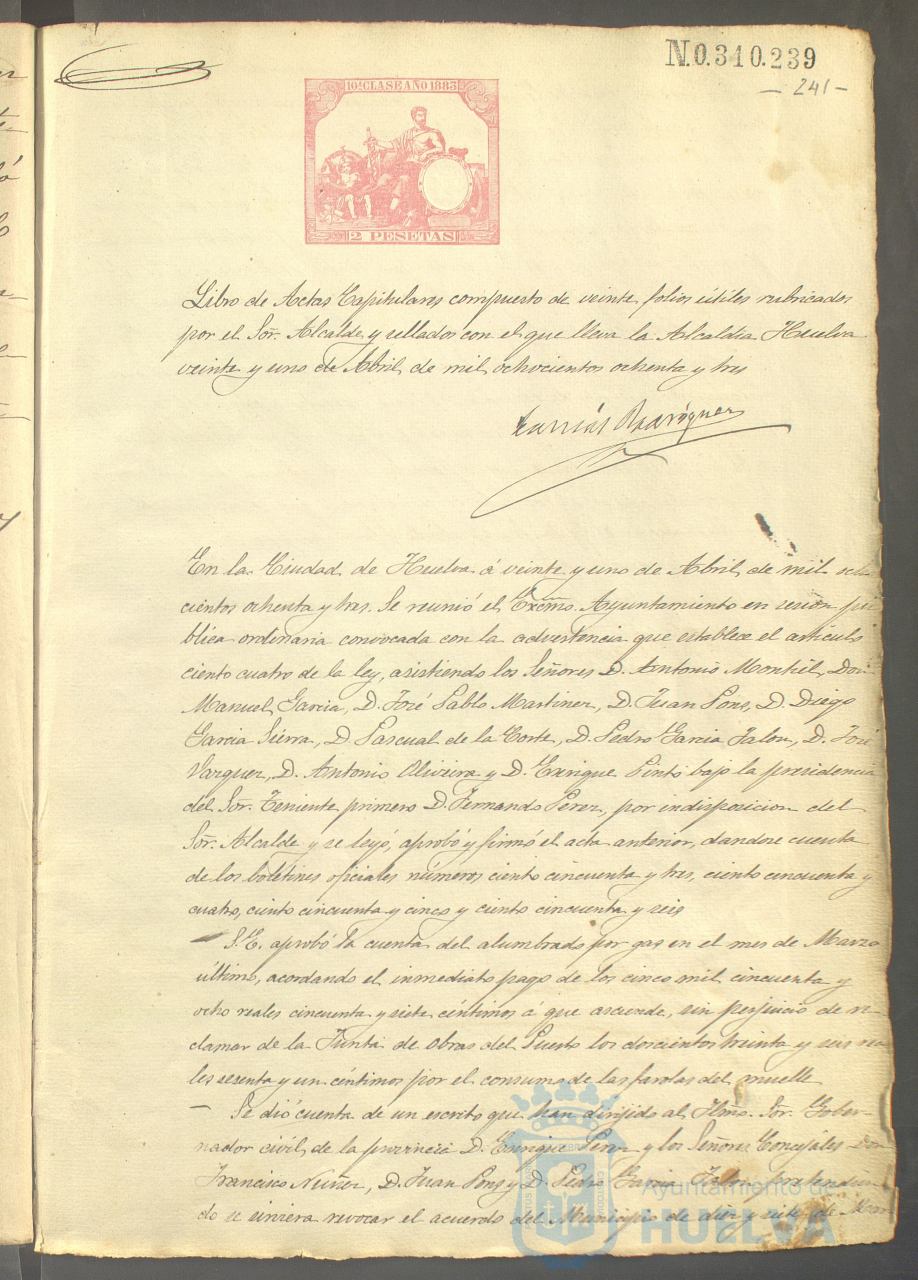 N.0.310.239
— 241 —
10ª CLASE AÑO 1883
2 PESETAS
Libro de Actas Capitulares compuesto de veinte folios útiles rubricados
por el Sor. Alcalde y sellados con el que lleva la Alcaldia Huelva
veinte y uno de Abril de mil ochocientos ochenta y tres
Rodriguez
En la Ciudad de Huelva á veinte y uno de Abril de mil ocho
cientos ochenta y tres. Se reunió el Excmo. Ayuntamiento en sesion pú
blica ordinaria convocada con la advertencia que establece el articulo
ciento cuatro de la ley, asistiendo los Señores D. Antonio Montiel, Don
Manuel Garcia, D. José Pablo Martinez, D. Juan Pons, D. Diego
Garcia Sierra, D. Pascual de la Corte, D. Pedro Garcia Jalon, D. José
Vazquez, D. Antonio Oliveira y D. Enrique Pinto bajo la presidencia
del Sor. Teniente primero D. Fernando Perez, por indisposicion del
Sor. Alcalde y se leyó, aprobó y firmó el acta anterior, dandose cuenta
de los boletines oficiales números ciento cincuenta y tres, ciento cincuenta y
cuatro, ciento cincuenta y cinco y ciento cincuenta y seis
S.E. aprobó la cuenta del alumbrado por gas en el mes de Marzo
último, acordando el inmediato pago de los cinco mil cincuenta y
ocho reales cincuenta y siete céntimos á que asciende, sin perjuicio de re
clamar de la Junta de obras del Puerto los doscientos treinta y seis rea
les sesenta y un céntimos por el consumo de las farolas del muelle
— Se dió cuenta de un escrito que han dirijido al Ilmo. Sor. Gober-
nador civil de la provincia D. Enrique Perez y los Señores Concejales Don
Francisco Nuñez, D. Juan Pons y D. Pedro Garcia Jalon pretendien
do se sirviera revocar el acuerdo del Municipio de diez y siete de Mar
Ayuntamiento de
HUELVA